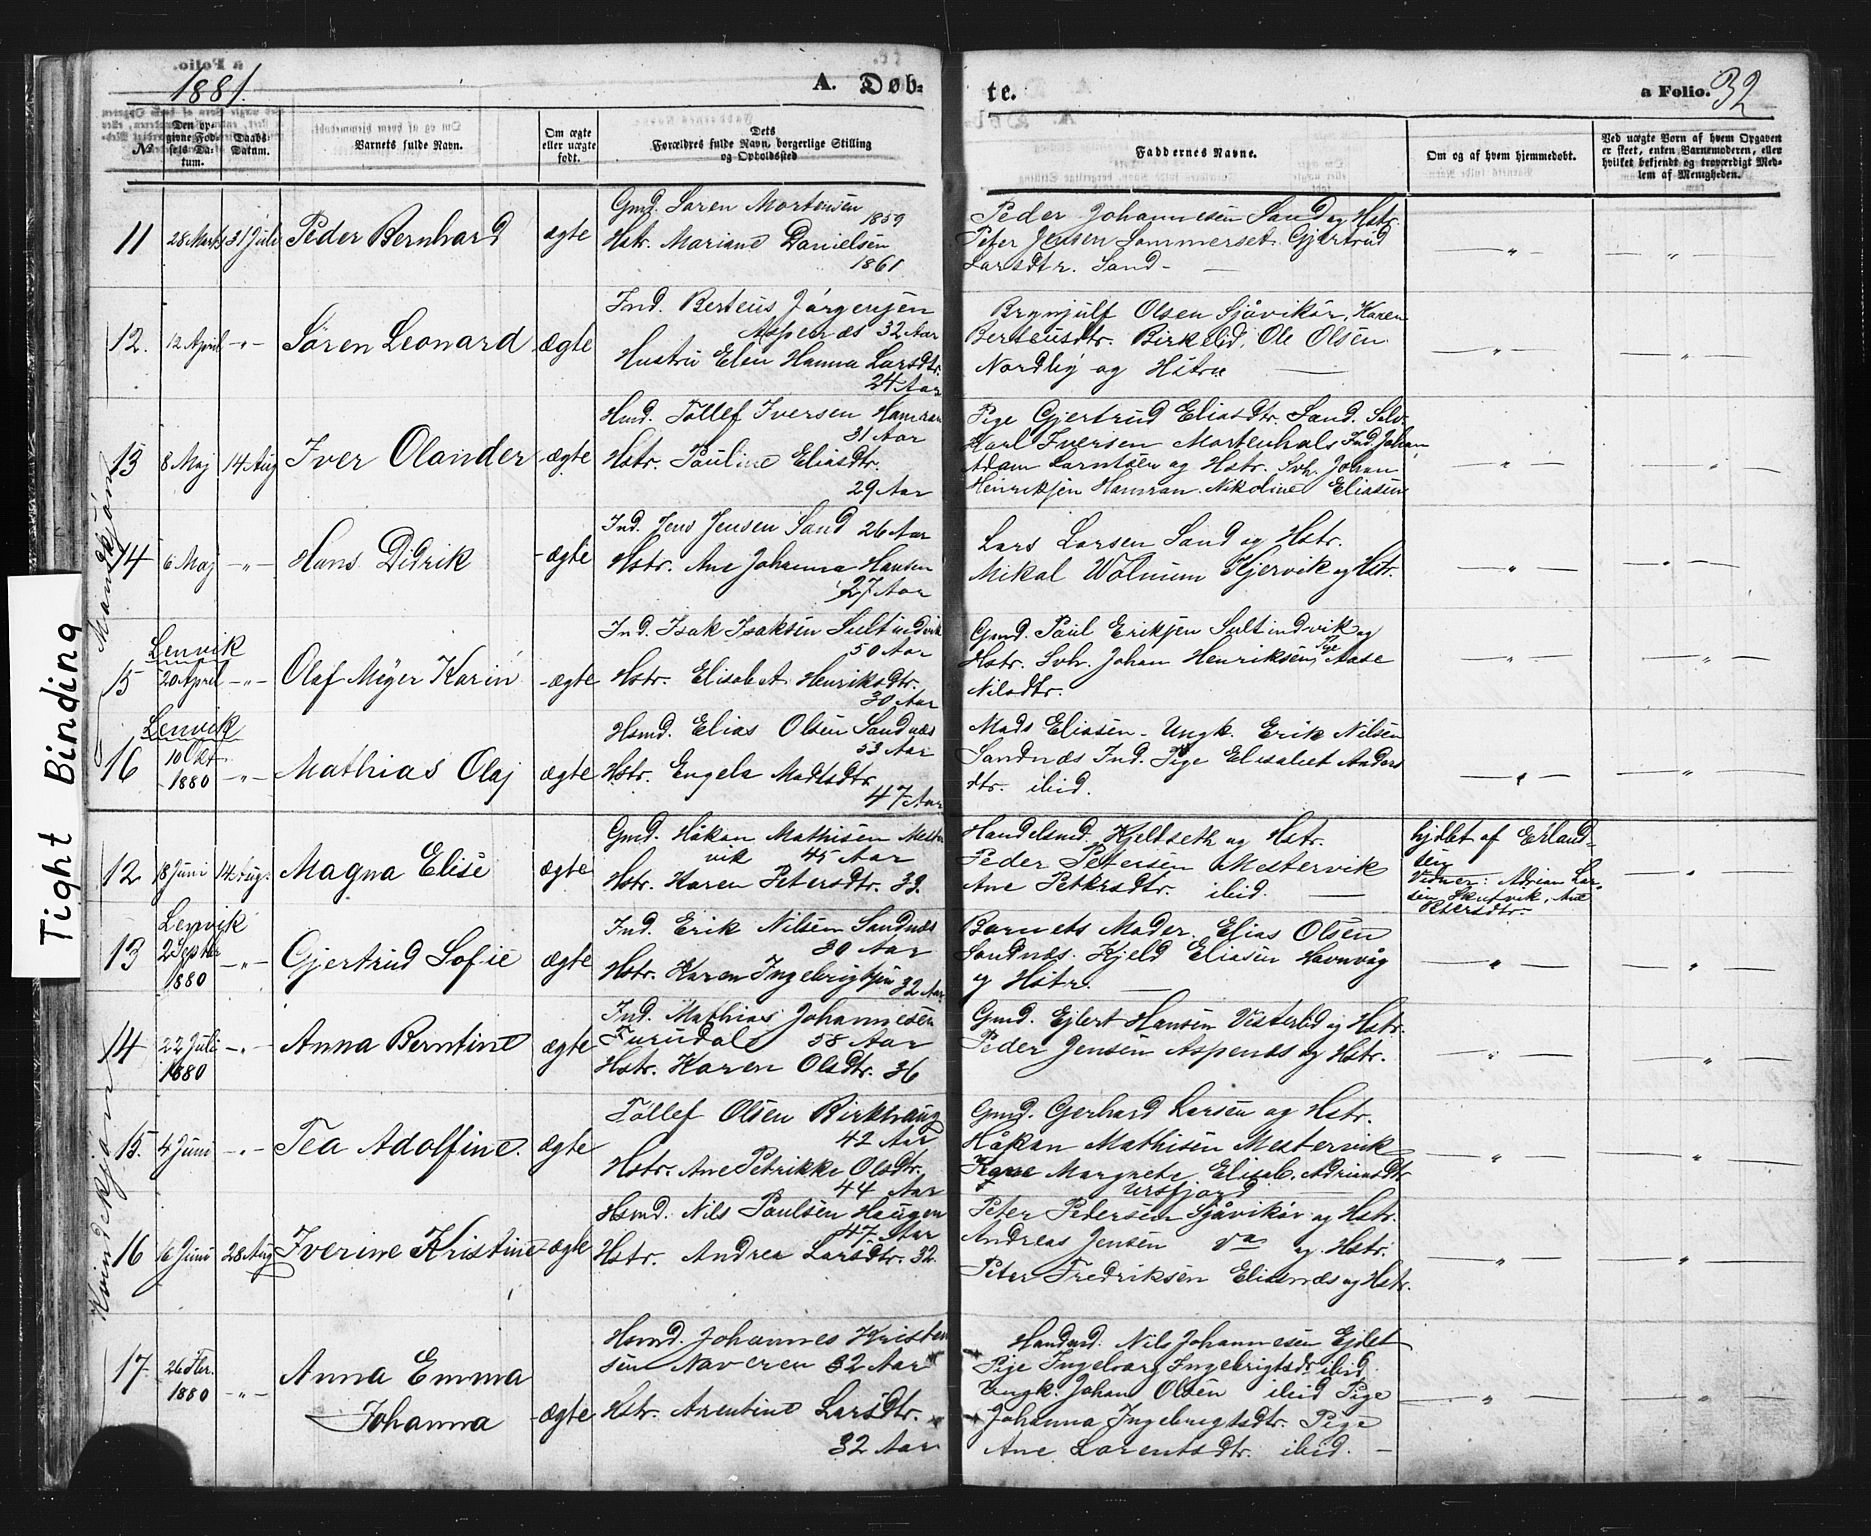 1881.
A. Døb-
te.
a Folio. 32
№
Den op-
givne Fød-
sels Da-
tum.
Daabs
Datum.
Barnets fulde Navn.
Om ægte
eller uægte
født.
Dets
Forældres fulde Navn, borgerlige Stilling
og Opholdssted
Faddernes Navne.
Om og af hvem hjemmedøbt.
Ved uægte Børn af hvem Opgaven
er skeet, enten Barnemoderen, eller
hvilket bekjendt og troværdigt Med-
lem af Menigheden.
Tight Binding
Mandkjøn
11 28 Marts 31 Juli Peder Bernhard ægte
Gmd. Søren Mortensen
1859
Hstr. Mariane Danielsen
1861
Peder Johannesen Sand og Hstr.
Peter Jensen Sommerset. Gjertrud
Larsdtr. Sand -
12. 12 April -"- Søren Leonard ægte
Ind. Berteus Jørgensen
Aspenæs 32 Aar
Hustru Elen Hanna Larsdtr.
24 Aar
Brynjulf Olsen Sjåvikør, Karen
Berteusdtr. Birkelid, Ole Olsen
Nordlig og Hstru
13 8 Maj 14 Aug Iver Olander ægte
Hmd. Tollef Iversen Hamran
31 Aar
Hstr. Pauline Eliasdtr.
29 Aar
Pige Gjertrud Eliasdtr. Sand. Selv.
Karl Iversen Mortenhals Ind. Johan
Adam Larntsen og Hstr. Svh. Johan
Henriksen Hamran. Nikoline Eliasen
14 6 Maj -"- Hans Didrik ægte
Ind. Jens Jensen Sand 26 Aar
Hstr. Ane Johanna Hansen
27 Aar
Lars Larsen Sand og Hstr.
Mikal Wolnum Kjervik og Hstr.
Lenvik
15 20 April -"- Olaf Meyer Karin ægte
Ind. Isak Isaksen Sultindvik
50 Aar
Hstr. Elisabet Henriksdtr.
30 Aar
Gmd. Paul Eriksen Sultindvik og
Hstr. Svh. Johan Henriksen, Pge Aase
Nilsdtr.
Lenvik
16 10 Okt 1880 -"- Mathias Olaj ægte
Hsmd. Elias Olsen Sandnæs
53 Aar
Hstr. Engela Madtsdtr
47 Aar
Mads Eliasen - Ungk. Erik Nilsen
Sandnæs Ind. Pige Elisabet Anders
dtr. ibid.
Kvindekjøn
12 18 Juni 14 Aug. Magna Elise ægte
Gmd. Håkan Mathisen Mester
vik 45 Aar
Hstr. Karen Petersdtr. 39.
Handelsmd. Kjeldseth og Hstr.
Peder Petersen Mestervik
Ane Petersdtr. ibid.
hjdbt af Erland-
sen
Vidner: Adrian Lar-
sen Skutvik, Ane
Petersdtr.
Lenvik
13 2 Septbr 1880 -"- Gjertrud Sofie ægte
Ind. Erik Nilsen Sandnæs
30 Aar
Hstr. Karen Ingebrigtsen 32 Aar
Barnets Moder. Elias Olsen
Sandnæs. Kjeld Eliasen Havnvåg
og Hstr.
14 22 Juli 1880 -"- Anna Berntine ægte
Ind. Mathias Johannesen
Furudal 58 Aar
Hstr. Karen Olsdtr. 36
Gmd. Ejlert Hansen Vesterlid og Hstr.
Peder Jensen Aspenæs og Hstr.
15. 4 Juni -"- Tea Adolfine. ægte
Tollef Olsen Birkhaug
42 Aar
Hstr. Ane Petrikke Olsdtr.
44 Aar
Gmd. Gerhard Larsen og Hstr.
Håkan Mathisen Mestervik
Margrete Elisab. Adriansdtr
Ursfjord
16 6 Juni 28 Aug Iverine Kristine ægte
Hsmd. Nils Paulsen Haugen
47 Aar
Hstr. Andrea Larsdtr. 32.
Peter Pedersen Sjåvikør og Hstr.
Andreas Jensen og Hstr.
Peter Fredriksen Elisenæs og Hstr.
17. 26 Fbr. 1880 -"- Anna Emma
Johanna ægte
Hsmd. Johannes Kristen
sen Naveren 32 Aar
Hstr. Arentine Larsdtr.
32 Aar
Handmd. Nils Johannesen Ejdet
Pige Ingeborg Ingebrigtsdr ibid,
Ungk. Johan Olsen ibid Pige
Johanna Ingebrigtsdtr. Pige
Ane Larentsdtr. ibid. -